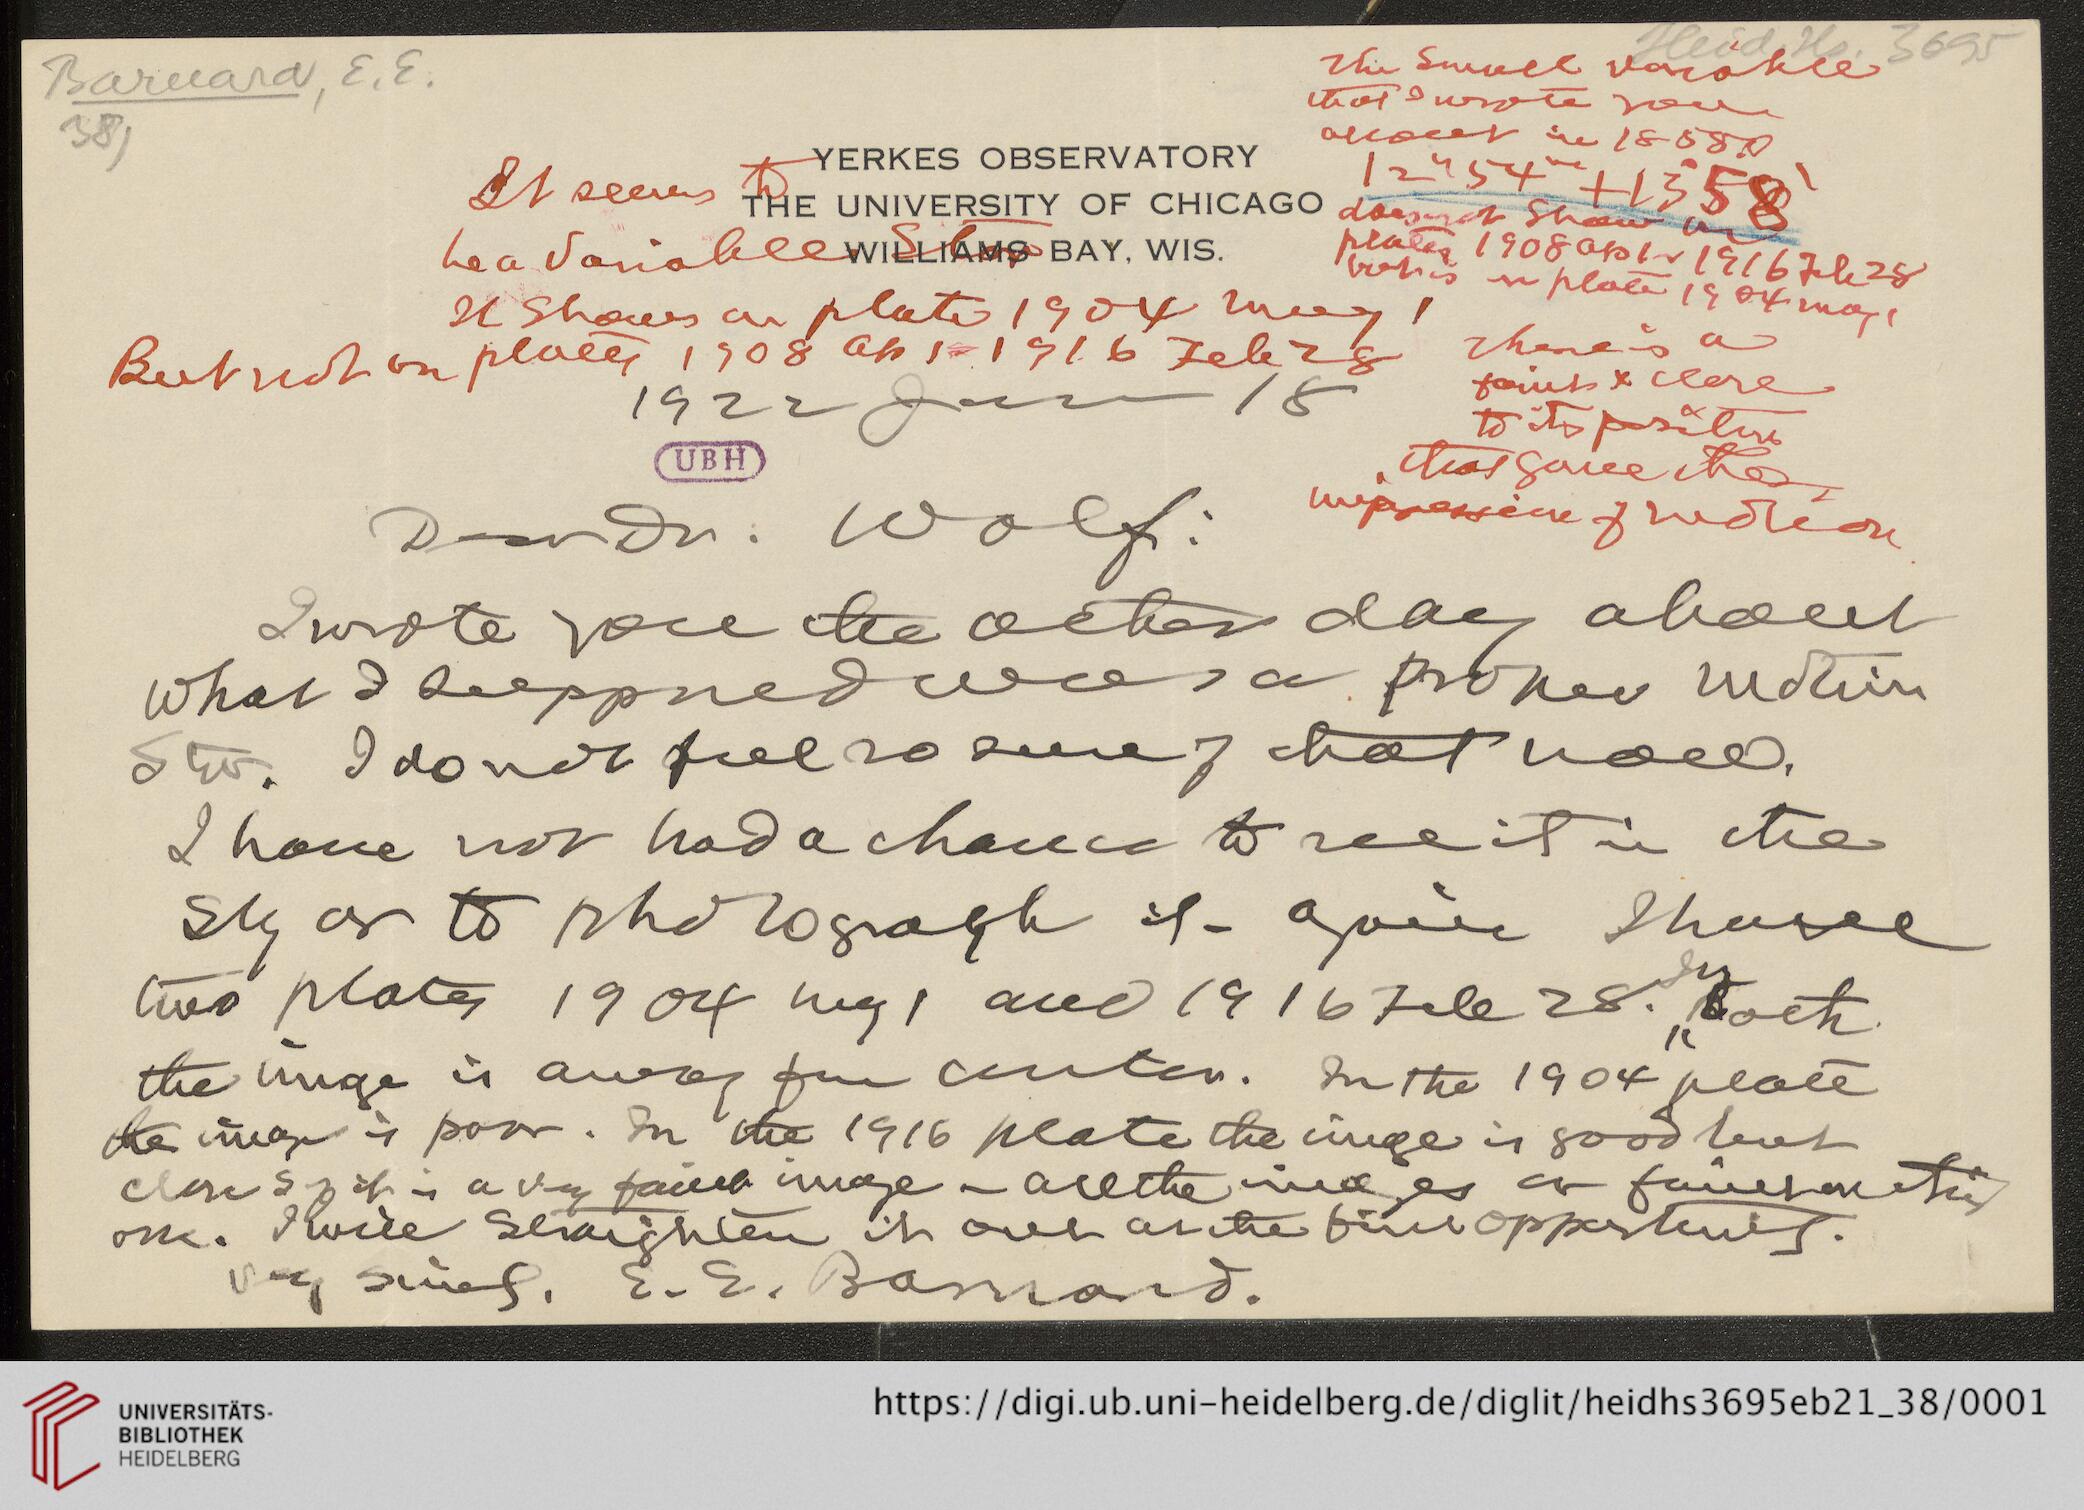 Barnard, E. E.
38)
Heid. Hs. 3695
YERKES OBSERVATORY
THE UNIVERSITY OF CHICAGO
WILLIAMS BAY, WIS.
It seems to
be a Variable Star
It Shows on plate 1904 May 1
But not on plates 1908 Ap 1 - 1916 Feb 28
The Small variable
that I wrote you
about in 1855.0
12h 54m +13° 58'
does not show on
plates 1908 Ap 1 1916 Feb 28
but is on plate 1904 May 1
There is a
faint * close
to its position
that gave the
impression of motion
1922 June 18
UBH
Dear Dr. Wolf:
I wrote you the other day about
what I supposed was a proper motion
Star. I do not feel so sure of that now.
I have not had a chance to see it in the
Sky or to photograph it - again I have
two plates 1904 May 1 and 1916 Feb 28. In both
the image is away from center. In the 1904 plate
the image is poor. In the 1916 plate the image is good but
close By it is a very faint image - all the images are faint on this
one. I will straighten it out at the first opportunity.
Very sincely. E. E. Barnard.
UNIVERSITÄTS-
BIBLIOTHEK
HEIDELBERG
https://digi.ub.uni-heidelberg.de/diglit/heidhs3695eb21_38/0001